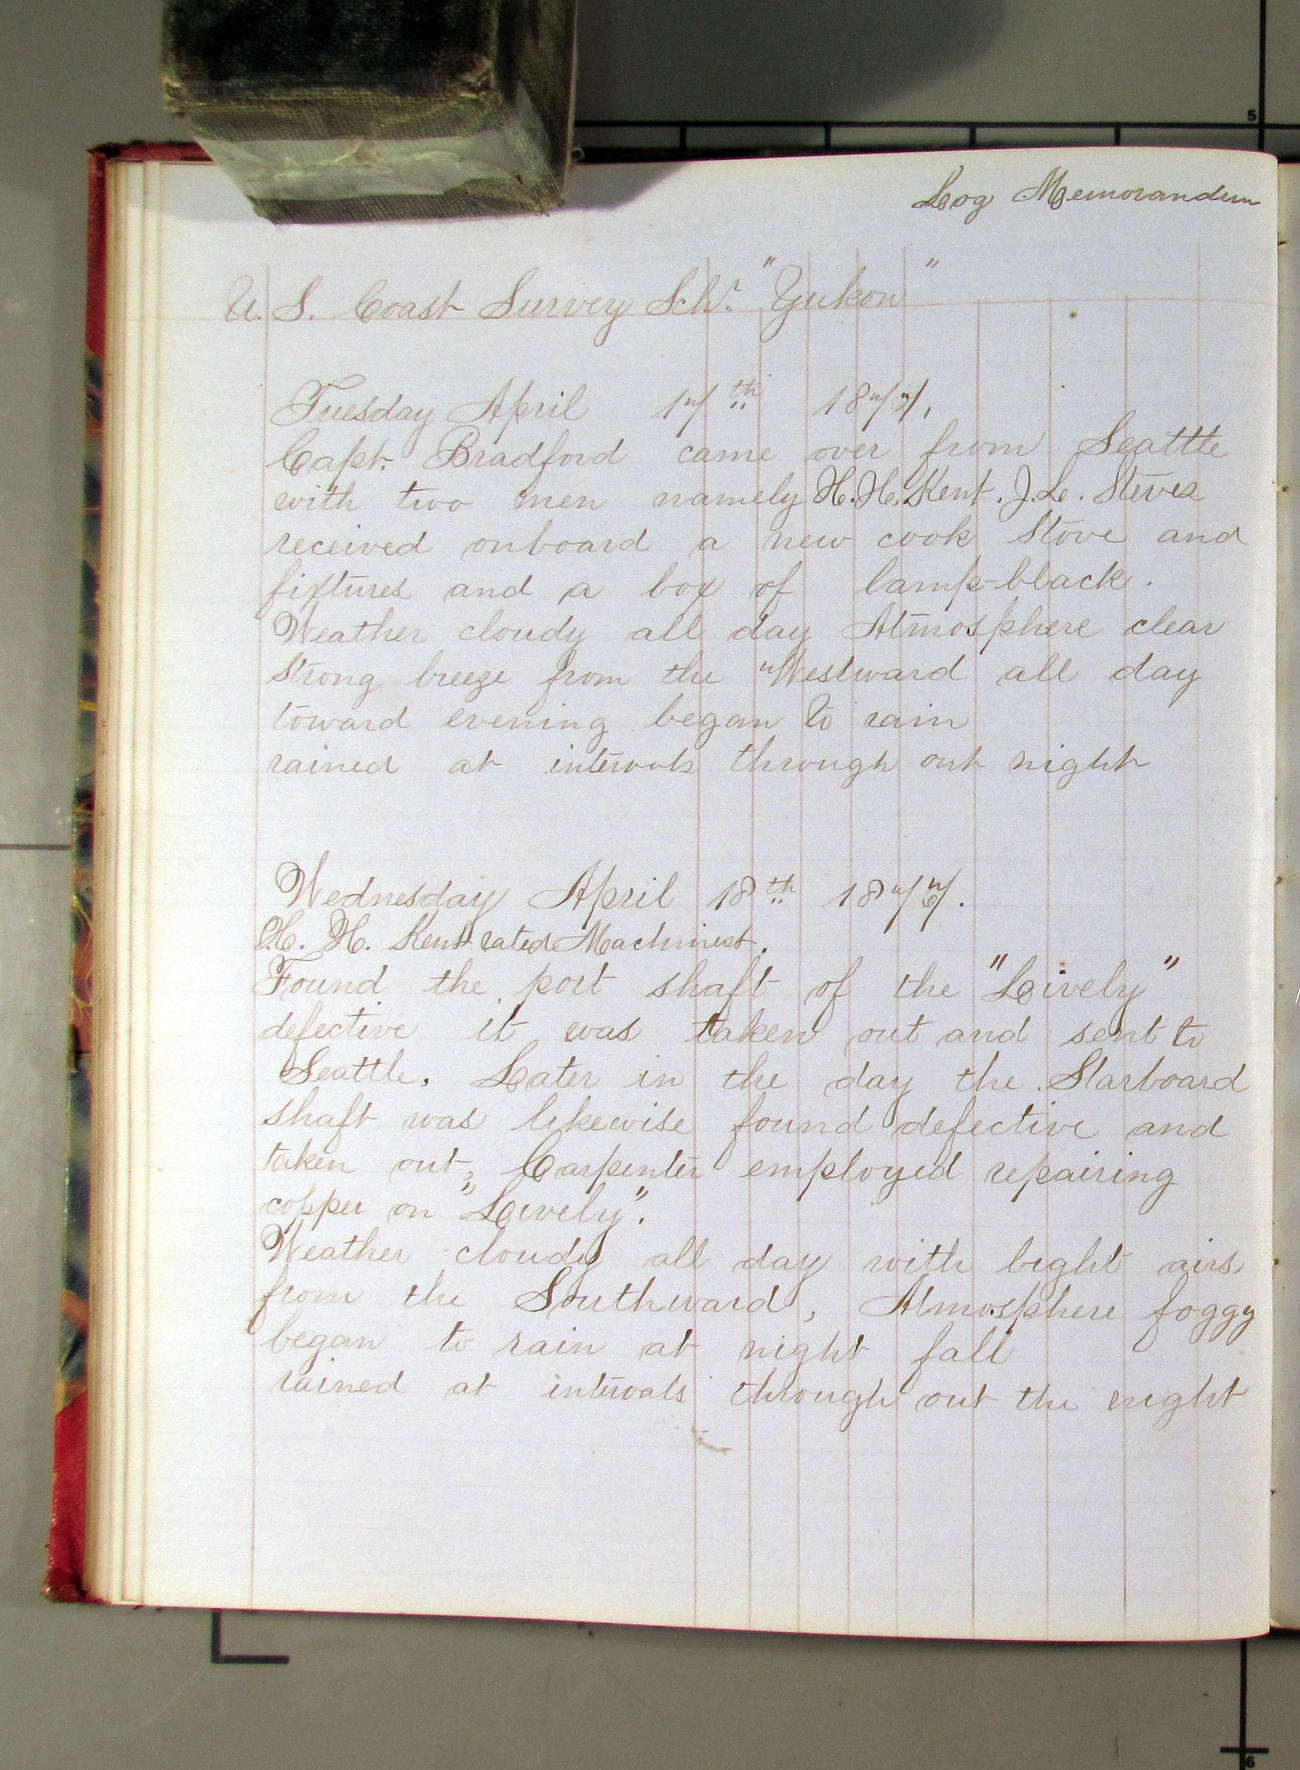 5
Log Memorandum
U. S. Coast Survey Schr. "Yukon"
Tuesday April 17th 1877.
Capt. Bradford came over from Seattle
with two men namely H. H. Kent. J. L. Steves
received onboard a new cook stove and
fixtures and a box of lamp-black.
Weather cloudy all day Atmosphere clear
strong breeze from the Westward all day
toward evening began to rain
rained at intervals through out night
Wednesday April 18th 1877.
H. H. Kent rated Machinest.
Found the port shaft of the "Lively"
defective it was taken out and sent to
Seattle. Later in the day the Starboard
shaft was likewise found defective and
taken out, Carpenter employed repairing
copper on "Lively".
Weather cloudy all day with light airs
from the Southward, Atmosphere foggy
began to rain at night fall
rained at intervals through out the night
6